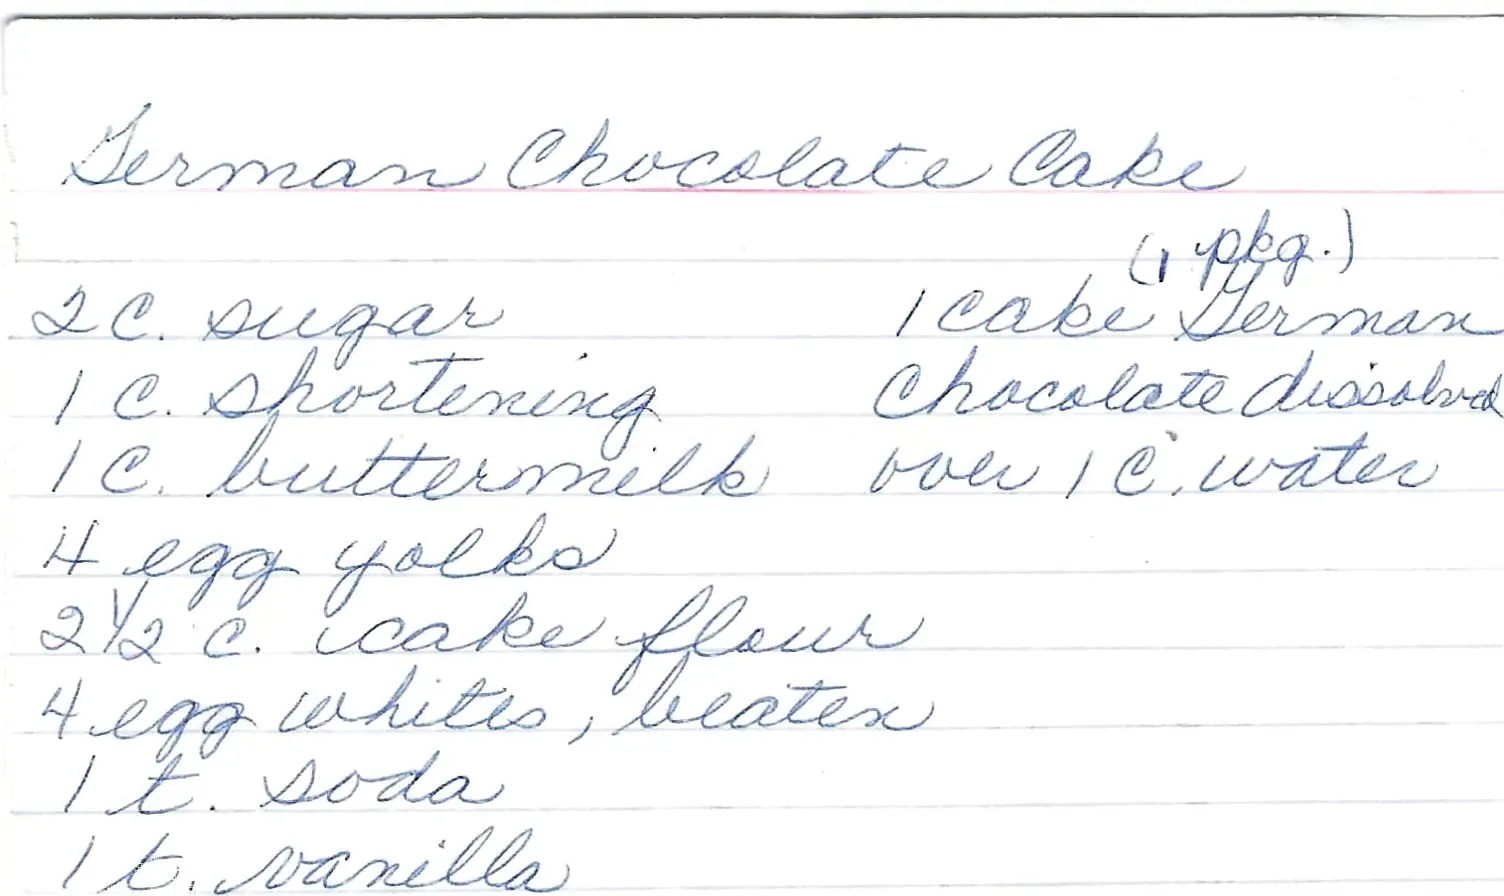 German Chocolate Cake
2 C. sugar
1 C. shortening
1 C. buttermilk
4 egg yolks
2 1/2 C. cake flour
4 egg whites, beaten
1 t. soda
1 t. vanilla
(1 pkg.)
1 cake German
Chocolate dissolved
over 1 C. water